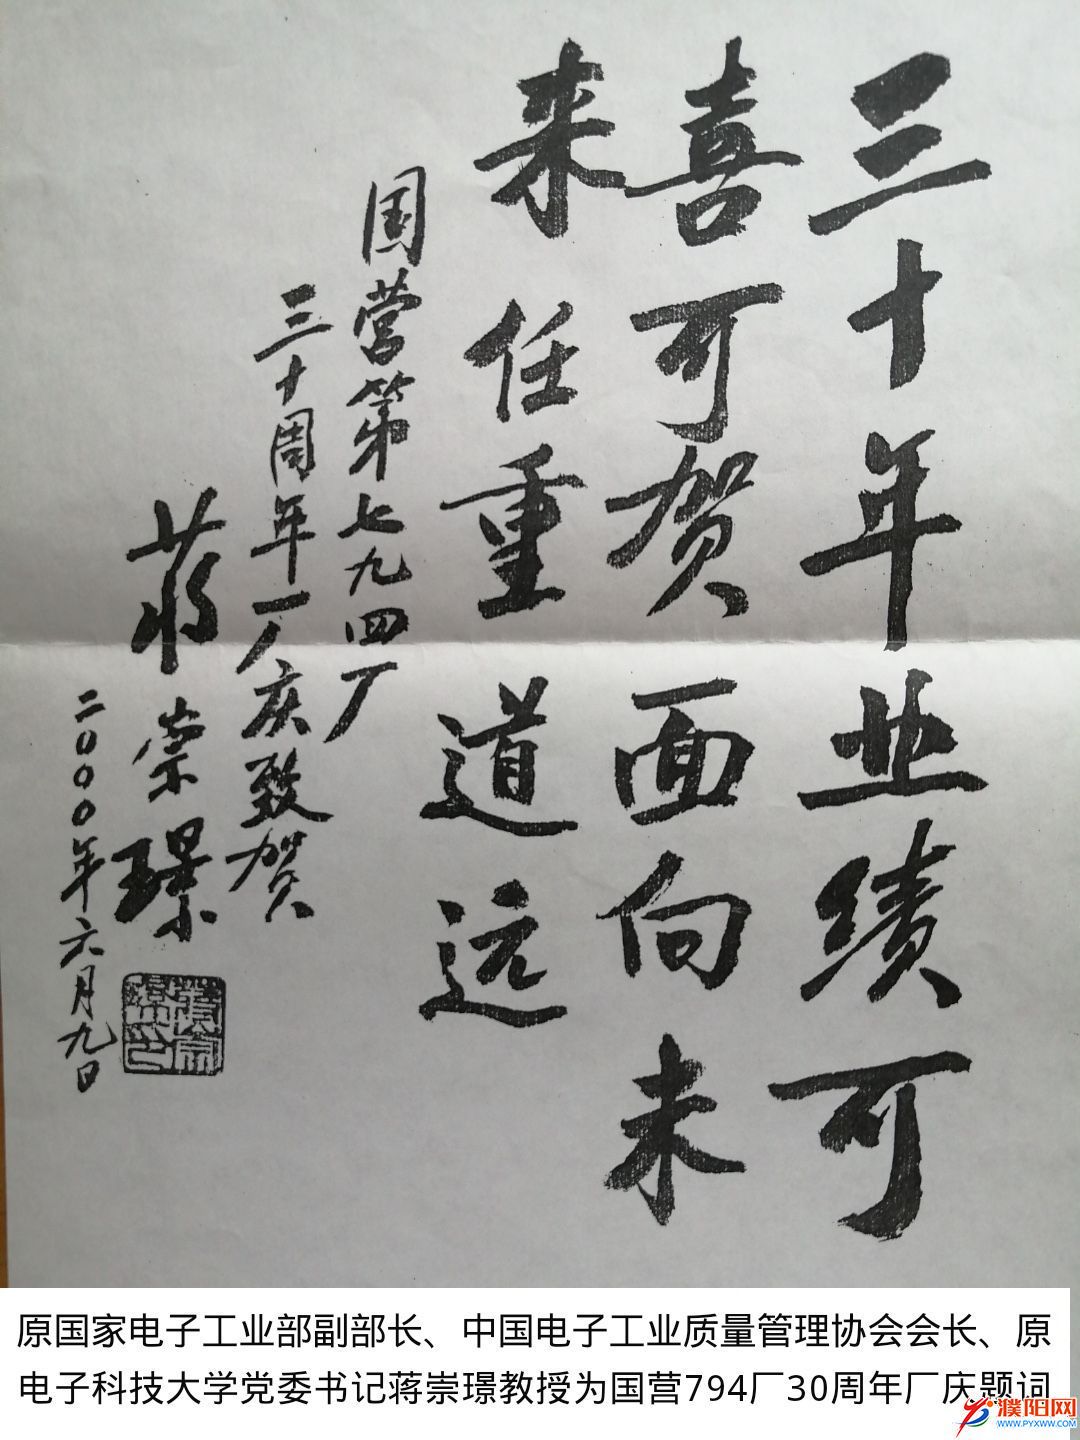 三十年业绩可
喜可贺面向未
来任重道远
国营第七九四厂
三十周年厂庆致贺
蒋崇璟
二〇〇〇年六月九日
原国家电子工业部副部长、中国电子工业质量管理协会会长、原
电子科技大学党委书记蒋崇璟教授为国营794厂30周年厂庆题词
濮阳网
WWW.PYXWW.COM